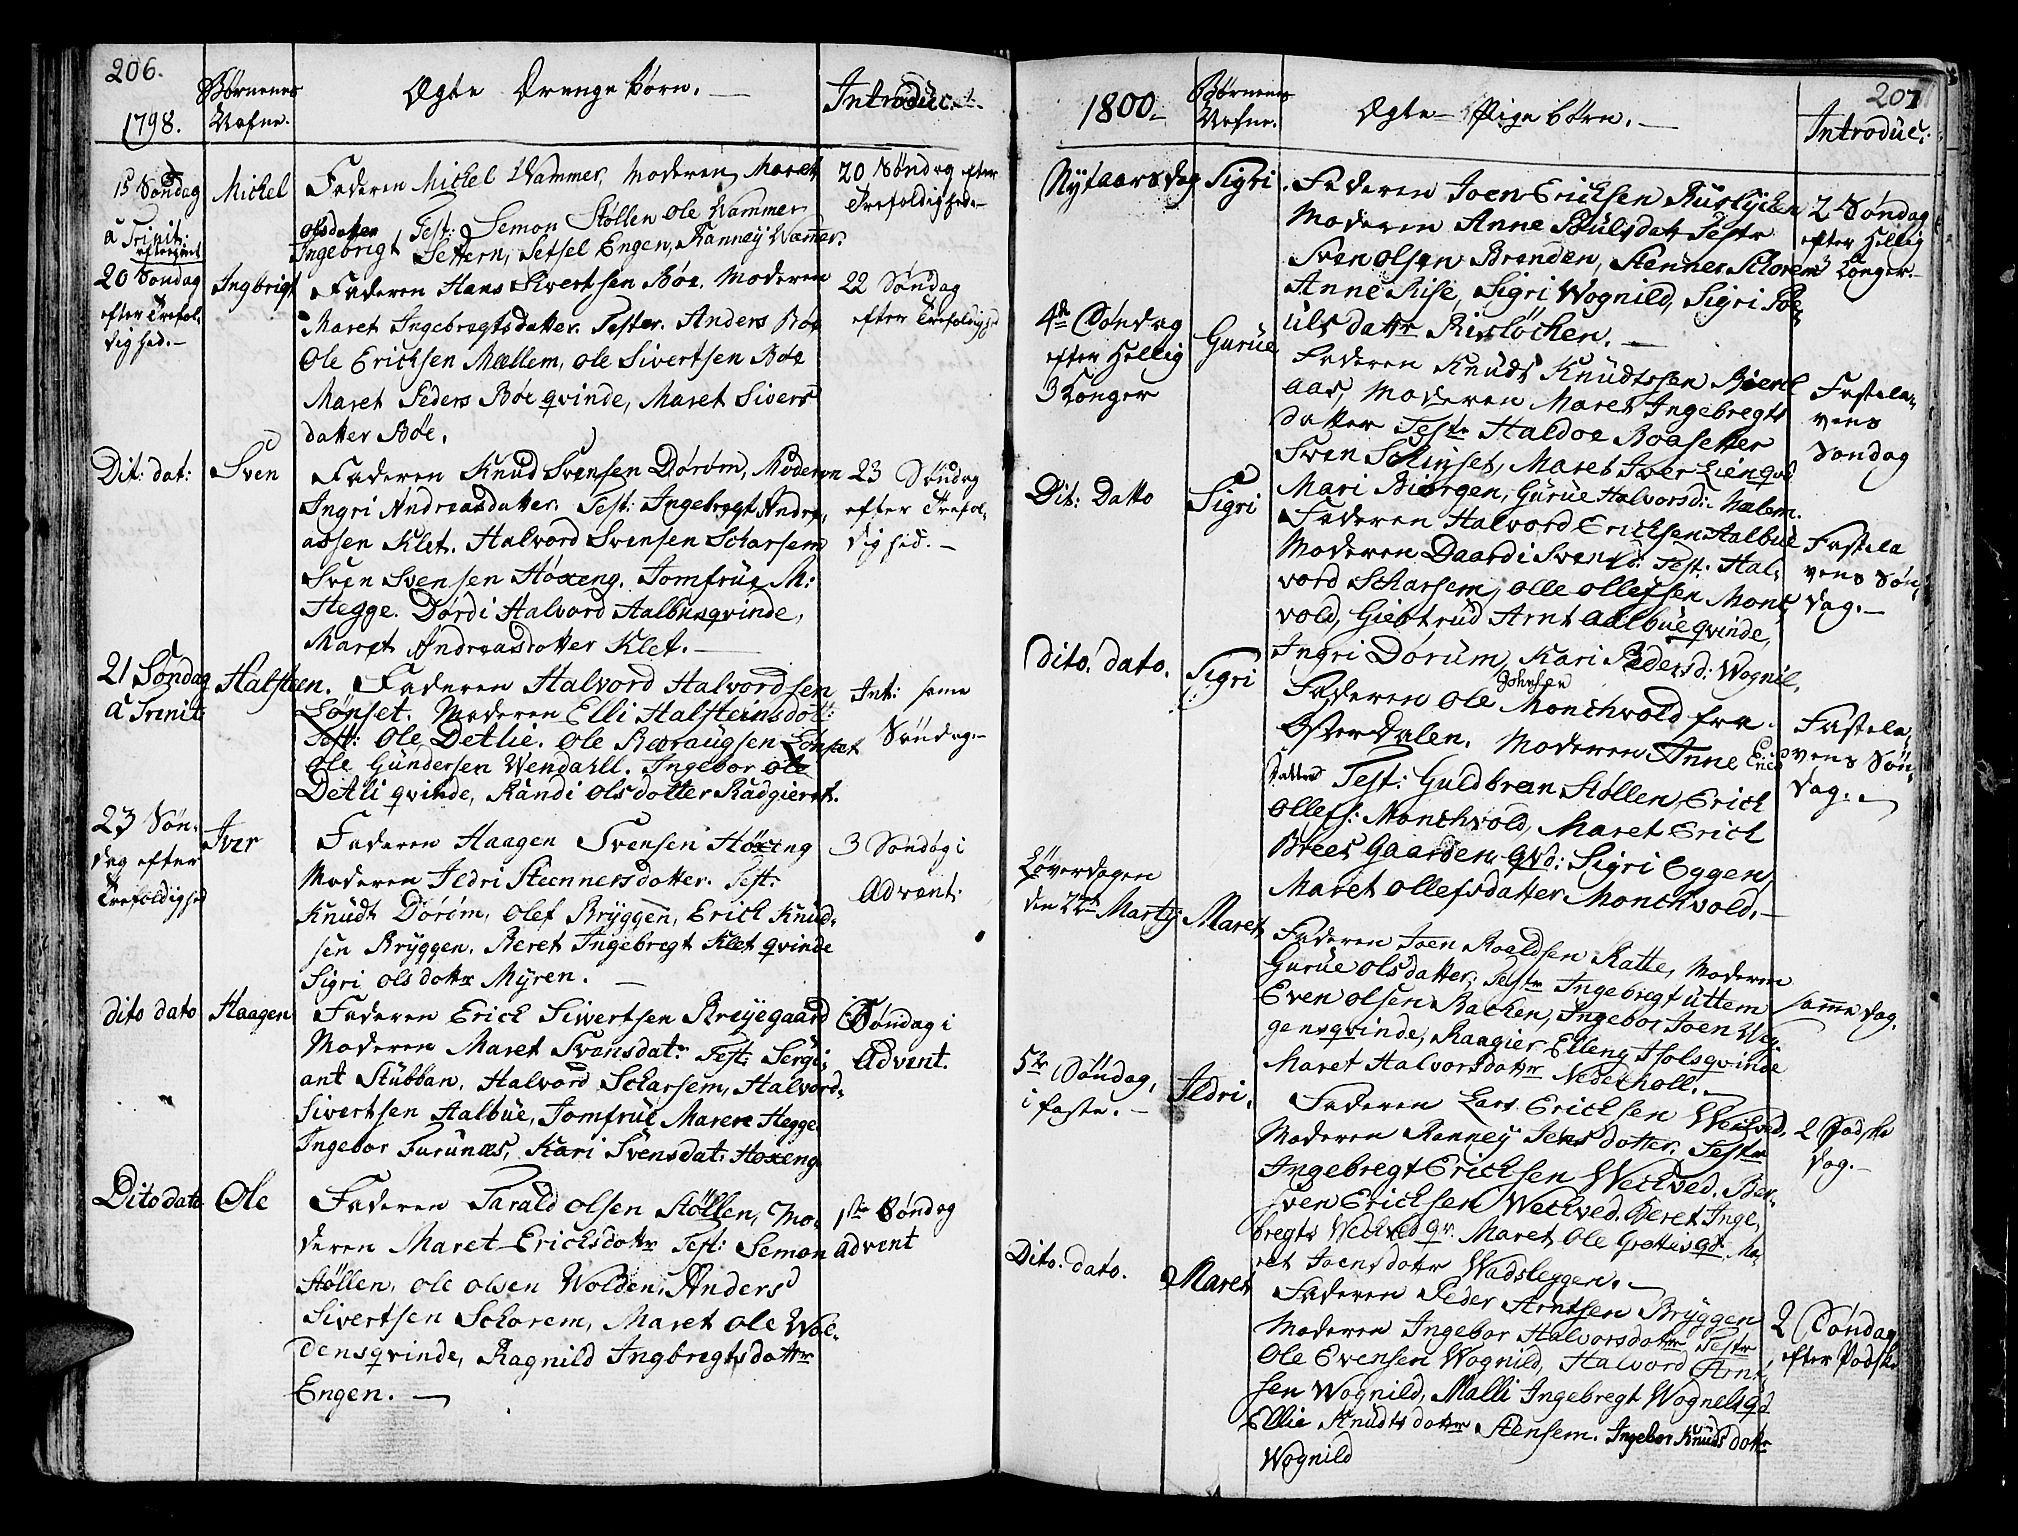 206.
1798.
Børnenes
Nafne.
Ægte Drenge børn.
Introduc:
15 Søndag
a Trinit:
Michel
Faderen Michel Wammer, Moderen Maret
olsdatter Test: Semon Stöllen Ole Wammer
Ingebrigt Settern, Setsel Engen, Ranney Wammer.
20 Søndag efter
Trefoldighed
20 Søndag
efter Trefol-
dighed.-
Ingbrigt
Faderen Hans Sivertsen Böe. Moderen
Maret Ingebregtsdatter. Tester. Anders Böe
Ole Ericksen Mællem, ole Sivertsen Böe
Maret Peders Böe qvinde, Maret Sivers
datter Böe.
22 Søndag
efter Trefoldighed
Dit: dat:
Sven
Faderen Knud Svensen Döröm, Moderen
Ingri Andreasdatter. Test: Ingebregt Andre,
assen Klet. Halvord Svensen Scharsem
Sven Svensen Höxeng. Jomfrue M:
Hegge. Dördi Halvord Aalbuesqvinde,
Maret Andreasdotter Klet.
23 Søndag
efter Trefol-
dighed.-
21 Søndag
a Trinit:
Halsteen.
Faderen Halvord Halvordsen
Lönset. Moderen Elli Halsteinsdott:
Test: Ole Detlie. Ole Rearaugsen Lönset
Ole Gundersen Wendahll. Ingebor Ole
Detli qvinde, Randi Olsdotter Rådgieret.
Int: same
Søndag.-
23 Søn-
dag efter
Trefoldighed
Iver
Faderen Haagen Svensen Höxeng
Moderen Ildri Steennersdotter. Test:
Knudt Döröm, Olef Bryggen, Erick Knud-
sen Bryggen, Beret Ingebregt Klet qvinde
Sigri olsdottr Myren.
3 Søndag i
Advent:
dito dato
Haagen
Faderen Erick Siwertsen Bröyegaard
Moderen Maret Svensdat: Test: Sergi-
ant Stubban, Halvord Scharsem, Halvord-
Sivertsen Aalbue, Jomfrue Maren Hegge
Ingebor Furunæs, Kari Svensdat: Hoxeng
Søndag i
Advent.
Dito dato
Ole
Faderen Tarald Olsen Stöllen, Mo-
deren Maret Ericksdottr Test: Semon
Stöllen, ole olsen Wolden, Anders
Sivertsen Schorem, Maret Ole Wol-
densqvinde, Ragnild Ingbregtsdottr
Engen.
1ste Søndag
advent
207
1800
Børnenes
Nafne.
Ægte Pige børn.
Introduc:
Nytaarsdag
Sigri.
Faderen Joen Ericksen Ruslychen
Moderen Anne Poulsdatr Testr
Sven Olsen Brenden, Stenner Schorem
Anne Rise, Sigri Wognild, Sigri Po-
ulsdattr Risslöcken.
2 Søndag
efter Hellig
3 Konger.-
4de Søndag
efter Hellig
3 Konger
Gurue
Faderen Knuds Knudtssen Bierch
aas, Moderen Maret Ingebregts
datter Teste Haldoe Boasetter
Sven Schinset, Maret Iver Lienqvd
Mari Biorgen, Gurue Halvorsd: Mælem.
Fastela-
vens
Søndag
Dit: Datto
Sigri
Faderen Halvord Ericksen Aalbue
Moderen Daardi Svensd: Test: Hal-
vord Scharsem, Olle ollefsen Monc,
vold, Giebtrud Arnt aalbue qvinde,
Ingri Dorum, Kari Pedersd: Wognil.
Fastela
vens Søn,
dag.-
Dito. dato.
Sigri
Faderen Ole Johnsen Monchvold fra
Österdalen. Moderen Anne Erics
datter Test: Guldbran Stöllen, Erick
Ollefs: Monchvold, Maret Erick
Brees Gaarden, qvd: Sigri Eggen,
Maret ollefsdatter Monchvold.-
Fastela,
vens Søn-
dag.
Løverdagen
den 22de Marty
Maret
Faderen Joen Roaldsen Ratte, Moderen
Gurue Olsdatter, Testr Ingebregt Uttem
Even Olsen Bachen, Ingebor Joen Wig-
gensqvinde, Raagier Elleng Holsqvinde
Maret Halvorsdattr Nederholl.
samme dag.
5te Søndag,
i faste.-
Ildri.
Faderen Lars Ericksen Weckved,
Moderen Ranney Jensdotter. Testr
Ingebregt Ericksen Weckved. Ber-
Sven Ericksen Weckved. Beret Inge,
bregts Weckved qv. Maret Ole Grøttis qd. Ma-
ret Joensdottr Wadsleggen.
2 Paaske
dag.-
Dito. dato.
Maret
Faderen Peder Arntsen Bryggen
Moderen Ingebor Halvorsdottr Testr
Ole Evensen Wognild, Halvord Arnt,
sen Wognild, Malli Ingebregt Wognild qd
Ellie Knudtsdottr Stensem. Ingebor Knudsdottr
Wognild
2 Søndag
efter Paaske